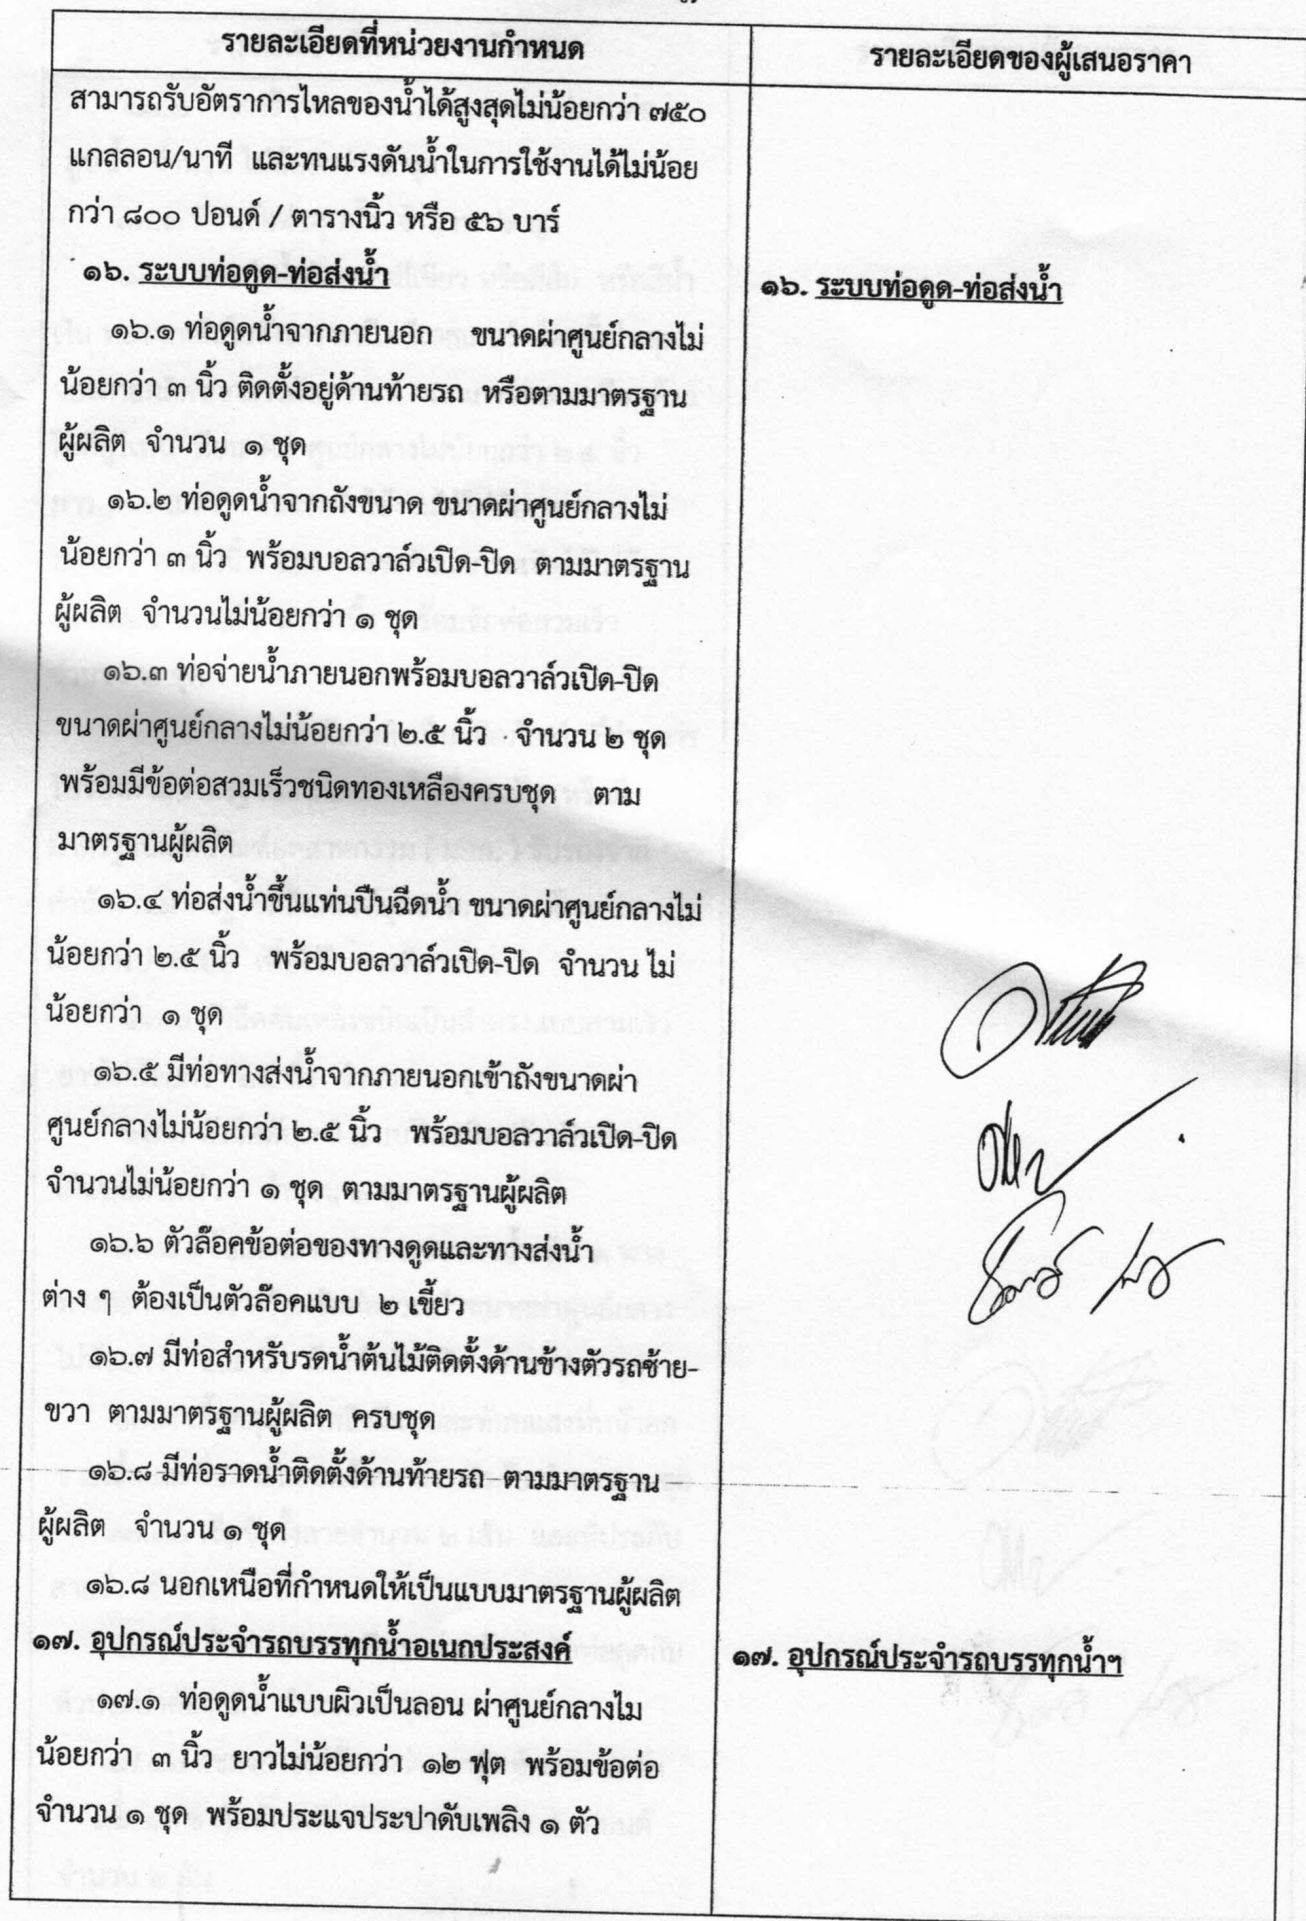 รายละเอียดที่หน่วยงานกำหนด
รายละเอียดของผู้เสนอราคา
สามารถรับอัตราการไหลของน้ำได้สูงสุดไม่น้อยกว่า ๗๕๐
แกลลอน/นาที และทนแรงดันน้ำในการใช้งานได้ไม่น้อย
กว่า ๘๐๐ ปอนด์ / ตารางนิ้ว หรือ ๕๖ บาร์
๑๖. ระบบท่อดูด-ท่อส่งน้ำ
๑๖.๑ ท่อดูดน้ำจากภายนอก ขนาดผ่าศูนย์กลางไม่
น้อยกว่า ๓ นิ้ว ติดตั้งอยู่ด้านท้ายรถ หรือตามมาตรฐาน
ผู้ผลิต จำนวน ๑ ชุด
๑๖.๒ ท่อดูดน้ำจากถังขนาด ขนาดผ่าศูนย์กลางไม่
น้อยกว่า ๓ นิ้ว พร้อมบอลวาล์วเปิด-ปิด ตามมาตรฐาน
ผู้ผลิต จำนวนไม่น้อยกว่า ๑ ชุด
๑๖.๓ ท่อจ่ายน้ำภายนอกพร้อมบอลวาล์วเปิด-ปิด
ขนาดผ่าศูนย์กลางไม่น้อยกว่า ๒.๕ นิ้ว จำนวน ๒ ชุด
พร้อมมีข้อต่อสวมเร็วชนิดทองเหลืองครบชุด ตาม
มาตรฐานผู้ผลิต
๑๖.๔ ท่อส่งน้ำขึ้นแท่นปืนฉีดน้ำ ขนาดผ่าศูนย์กลางไม่
น้อยกว่า ๒.๕ นิ้ว พร้อมบอลวาล์วเปิด-ปิด จำนวน ไม่
น้อยกว่า ๑ ชุด
๑๖.๕ มีท่อทางส่งน้ำจากภายนอกเข้าถังขนาดผ่า
ศูนย์กลางไม่น้อยกว่า ๒.๕ นิ้ว พร้อมบอลวาล์วเปิด-ปิด
จำนวนไม่น้อยกว่า ๑ ชุด ตามมาตรฐานผู้ผลิต
๑๖.๖ ตัวล๊อคข้อต่อของทางดูดและทางส่งน้ำ
ต่าง ๆ ต้องเป็นตัวล๊อคแบบ ๒ เขี้ยว
๑๖.๗ มีท่อสำหรับรดน้ำต้นไม้ติดตั้งด้านข้างตัวรถซ้าย-
ขวา ตามมาตรฐานผู้ผลิต ครบชุด
๑๖.๘ มีท่อราดน้ำติดตั้งด้านท้ายรถ ตามมาตรฐาน
ผู้ผลิต จำนวน ๑ ชุด
๑๖.๘ นอกเหนือที่กำหนดให้เป็นแบบมาตรฐานผู้ผลิต
๑๗. อุปกรณ์ประจำรถบรรทุกน้ำอเนกประสงค์
๑๗.๑ ท่อดูดน้ำแบบผิวเป็นลอน ผ่าศูนย์กลางไม
น้อยกว่า ๓ นิ้ว ยาวไม่น้อยกว่า ๑๒ ฟุต พร้อมข้อต่อ
จำนวน ๑ ชุด พร้อมประแจประปาดับเพลิง ๑ ตัว
๑๖. ระบบท่อดูด-ท่อส่งน้ำ
๑๗. อุปกรณ์ประจำรถบรรทุกน้ำฯ